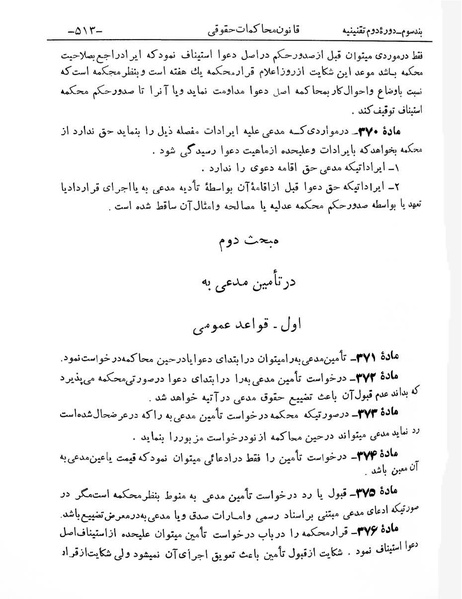 بند سوم ـ دورهٔ دوم تقنینیه قانون محاکمات حقوقی ـ۵۱۳ـ
فقط درموردی میتوان قبل از صدور حکم در اصل دعوا استیناف نمود که ایراد راجع بصلاحیت
محکمه باشد موعد این شکایت از روز اعلام قرار محکمه یك هفته است و بنظر محکمه است که
نسبت باوضاع واحوال کار بمحاکمه اصل دعوا مداومت نماید ویا آنرا تا صدور حکم محکمه
استیناف توقیف کند .
مادهٔ ۳۷۰ـ درمواردی که مدعی علیه ایرادات مفصله ذیل را بنماید حق ندارد از
محکمه بخواهد که بایرادات و علیحده از ماهیت دعوا رسیدگی شود .
۱ـ ایراداتیکه مدعی حق اقامه دعوی را ندارد .
۲ـ ایراداتیکه حق دعوا قبل از اقامهٔ آن بواسطهٔ تأدیه مدعی به یا اجرای قرارداد یا
تعهد یا بواسطه صدور حکم محکمه عدلیه یا مصالحه وامثال آن ساقط شده است .
مبحث دوم
در تأمین مدعی به
اول ـ قواعد عمومی
مادهٔ ۳۷۱ـ تأمین مدعی به را میتوان در ابتدای دعوا یا در حین محاکمه درخواست نمود.
مادهٔ ۳۷۲ـ درخواست تأمین مدعی به را در ابتدای دعوا در صورتی محکمه می پذیرد
که بداند عدم قبول آن باعث تضییع حقوق مدعی در آتیه خواهد شد .
مادهٔ ۳۷۳ـ در صورتیکه محکمه درخواست تأمین مدعی به را که در عرضحال شده است
رد نماید مدعی میتواند در حین محاکمه از نو درخواست مزبور را بنماید .
مادهٔ ۳۷۴ـ درخواست تأمین را فقط در ادعائی میتوان نمود که قیمت یا عین مدعی به
آن معین باشد .
مادهٔ ۳۷۵ـ قبول یا رد درخواست تأمین مدعی به منوط بنظر محکمه است مگر در
صورتیکه ادعای مدعی مبتنی بر اسناد رسمی و امارات صدق و یا مدعی به در معرض تضییع باشد.
مادهٔ ۳۷۶ـ قرار محکمه را در باب درخواست تأمین میتوان علیحده از استیناف اصل
دعوا استیناف نمود . شکایت از قبول تأمین باعث تعویق اجرای آن نمیشود ولی شکایت از قرار